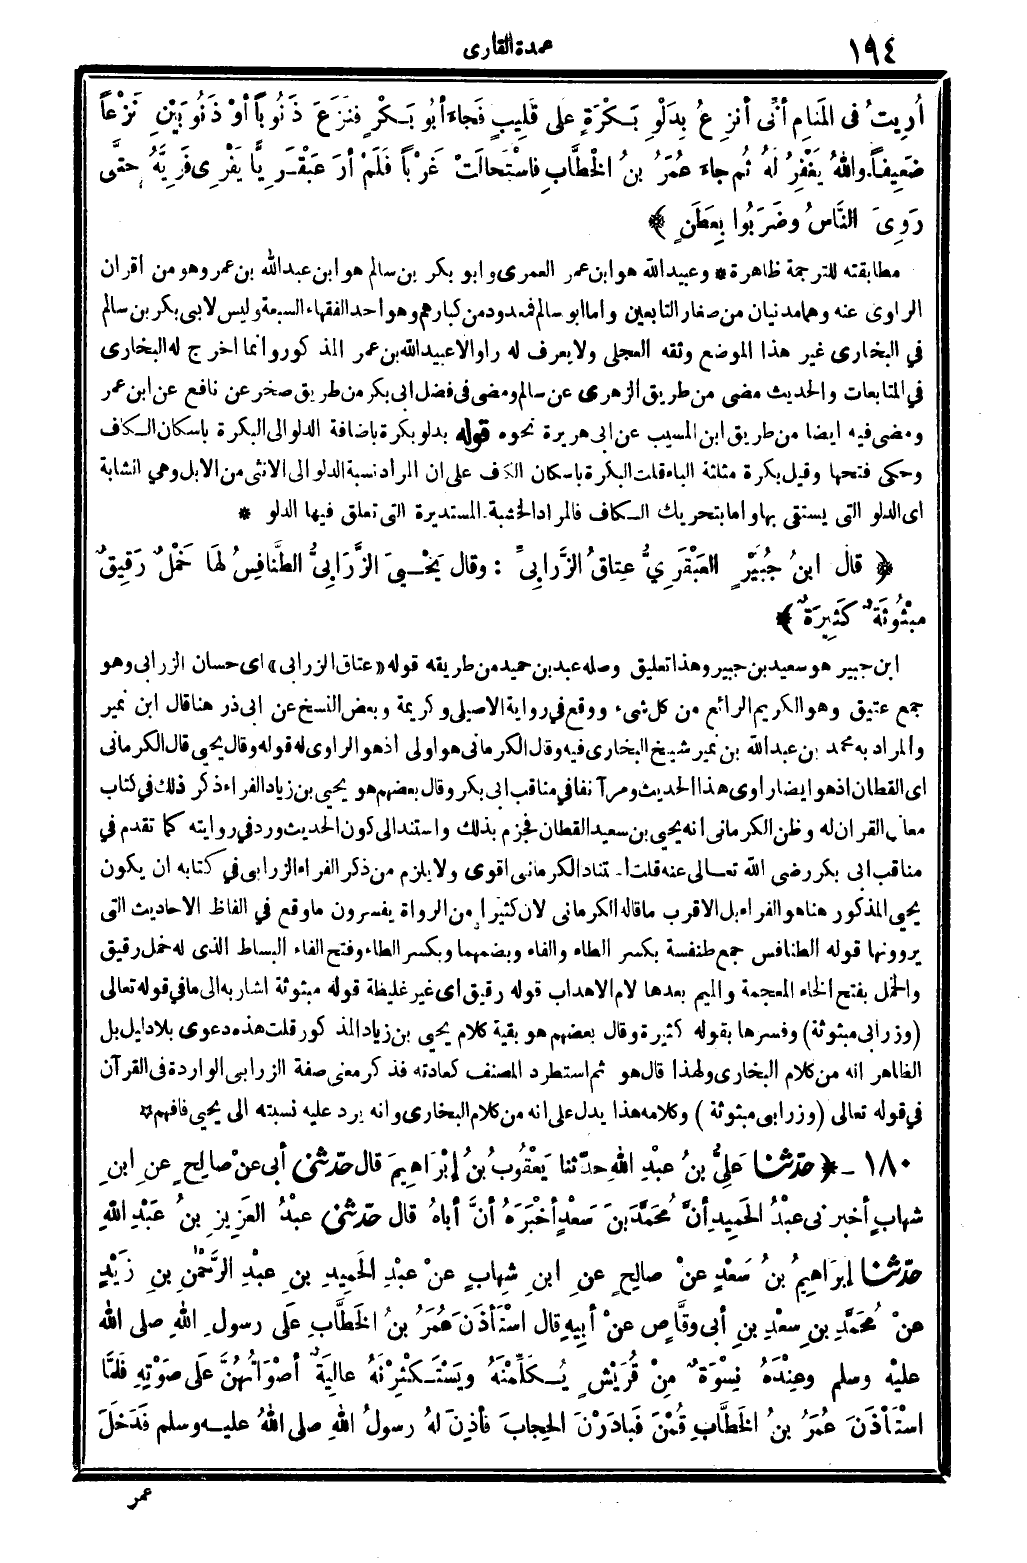 ١٩٤
عمدة القارى
أُرِيتُ فى المَنامِ أنِّى أنْزِعُ بِدَلْوِ بَكْرَةٍ على قَلِيبٍ فَجاءَ أبُو بَكْرٍ فنَزَعَ ذَنُوباً أوْ ذَنُوبَيْنِ نَزْعاً
ضَعِيفاً واللهُ يَغْفِرُ لهُ ثُم جاءَ عُمَرُ بنُ الخَطَّابِ فاسْتَحالَتْ غَرْباً فَلَمْ أرَ عَبْقَرِيًّا يَفْرِى فَرِيَّهُ حتَّى
رَوِىَ النَّاسُ وضَرَبُوا بِعَطَنٍ ﴾
مطابقته للترجمة ظاهرة * وعبيدالله هو ابن عمر العمرى وابو بكر بن سالم هو ابن عبدالله بن عمر وهو من اقران
الراوى عنه وهما مدنيان من صغار التابعين واما ابو سالم فمعدود من كبارهم وهو احد الفقهاء السبعة وليس لابى بكر بن سالم
في البخارى غير هذا الموضع وثقه العجلى ولا يعرف له راو الا عبيدالله بن عمر المذكور وانما اخرج له البخارى
في المتابعات والحديث مضى من طريق الزهرى عن سالم ومضى فى فضل ابى بكر من طريق صخر عن نافع عن ابن عمر
ومضى فيه ايضا من طريق ابن المسيب عن ابى هريرة نحوه قوله بدلو بكرة باضافة الدلو الى البكرة باسكان الكاف
وحكى فتحها وقيل بكرة مثلثة الباء قلت البكرة باسكان الكاف على ان المراد نسبة الدلو الى الانثى من الابل وهي الشابة
اى الدلو التى يستقى بها واما بتحريك الكاف فالمراد الخشبة المستديرة التى تعلق فيها الدلو *
﴿ قال ابنُ جُبَيْرٍ العَبْقَرِيُّ عِتاقُ الزَّرابِىِّ : وقال يَحْيىَ الزَّرَابِىُّ الطَّنافِسُ لهَا خَمْلٌ رَقِيقٌ
مَبْثُوثَةٌ كَثِيرَةٌ ﴾
ابن جبير هو سعيد بن جبير وهذا تعليق وصله عبد بن حميد من طريقه قوله «عتاق الزرابى» اى حسان الزرابى وهو
جمع عتيق وهو الكريم الرائع من كل شىء ووقع في رواية الاصيلى وكريمة وبعض النسخ عن ابى ذر هنا قال ابن نمير
والمراد به محمد بن عبدالله بن نمير شيخ البخارى فيه وقال الكرمانى هو اولى اذ هو الراوى له قوله وقال يحيى قال الكرمانى
اى القطان اذ هو ايضا راوى هذا الحديث ومر آنفا في مناقب ابى بكر وقال بعضهم هو يحيى بن زياد الفراء ذكر ذلك في كتاب
معانى القران له وظن الكرمانى انه يحيى بن سعيد القطان فجزم بذلك واستند الى كون الحديث ورد في روايته كما تقدم في
مناقب ابى بكر رضى الله تعالى عنه قلت استناد الكرمانى اقوى ولا يلزم من ذكر الفراء الزرابى في كتابه ان يكون
يحيى المذكور هنا هو الفراء بل الاقرب ما قاله الكرمانى لان كثيرا من الرواة يفسرون ما وقع في الفاظ الاحاديث التى
يروونها قوله الطنافس جمع طنفسة بكسر الطاء والفاء وبضمهما وبكسر الطاء وفتح الفاء البساط الذى له خمل رقيق
والخمل بفتح الخاء المعجمة والميم بعدها لام الاهداب قوله رقيق اى غير غليظة قوله مبثوثة اشار به الى ما في قوله تعالى
(وزرابى مبثوثة) وفسرها بقوله كثيرة وقال بعضهم هو بقية كلام يحيى بن زياد المذكور قلت هذه دعوى بلا دليل بل
الظاهر انه من كلام البخارى ولهذا قال هو ثم استطرد المصنف كعادته فذكر معنى صفة الزرابى الواردة فى القرآن
في قوله تعالى (وزرابى مبثوثة) وكلامه هذا يدل على انه من كلام البخارى وانه يرد عليه نسبته الى يحيى فافهم *
١٨٠ - ﴿ حدّثنا عَلِيُّ بنُ عبْدِ اللهِ حدّثنا يَعْقُوبُ بنُ إبْرَاهِيمَ قال حدّثنى أبى عنْ صالِحٍ عنِ ابنِ
شهابٍ أخبرنى عبدُ الحَميدِ أنَّ مُحَمَّدَ بنَ سَعْدٍ أخْبَرَهُ أنَّ أباهُ قال حدّثنى عبْدُ العَزِيزِ بنُ عَبْدِ اللهِ
حدّثنا إبْرَاهِيمُ بنُ سَعْدٍ عنْ صالِحٍ عنِ ابنِ شِهابٍ عنْ عبْدِ الحَمِيدِ بنِ عبْدِ الرَّحْمٰنِ بنِ زَيْدٍ
عنْ مُحَمَّدِ بنِ سعْدِ بنِ أبى وقَّاصٍ عنْ أبِيهِ قال اسْتَأذَنَ عُمَرُ بنُ الخَطَّابِ عَلَى رسولِ اللهِ صلى الله
عليْه وسلم وعِنْدَهُ نِسْوَةٌ مِنْ قُرَيْشٍ يُكَلِّمْنَهُ ويَسْتَكْثِرْنَهُ عالِيَةٌ أصْوَاتُهُنَّ عَلَى صَوْتِهِ فَلمَّا
اسْتَأْذَنَ عُمَرُ بنُ الخَطَّابِ قُمْنَ فَبادَرْنَ الحِجابَ فأذِنَ لهُ رسولُ اللهِ صلى اللهُ عليه وسلم فَدَخَلَ
عمر